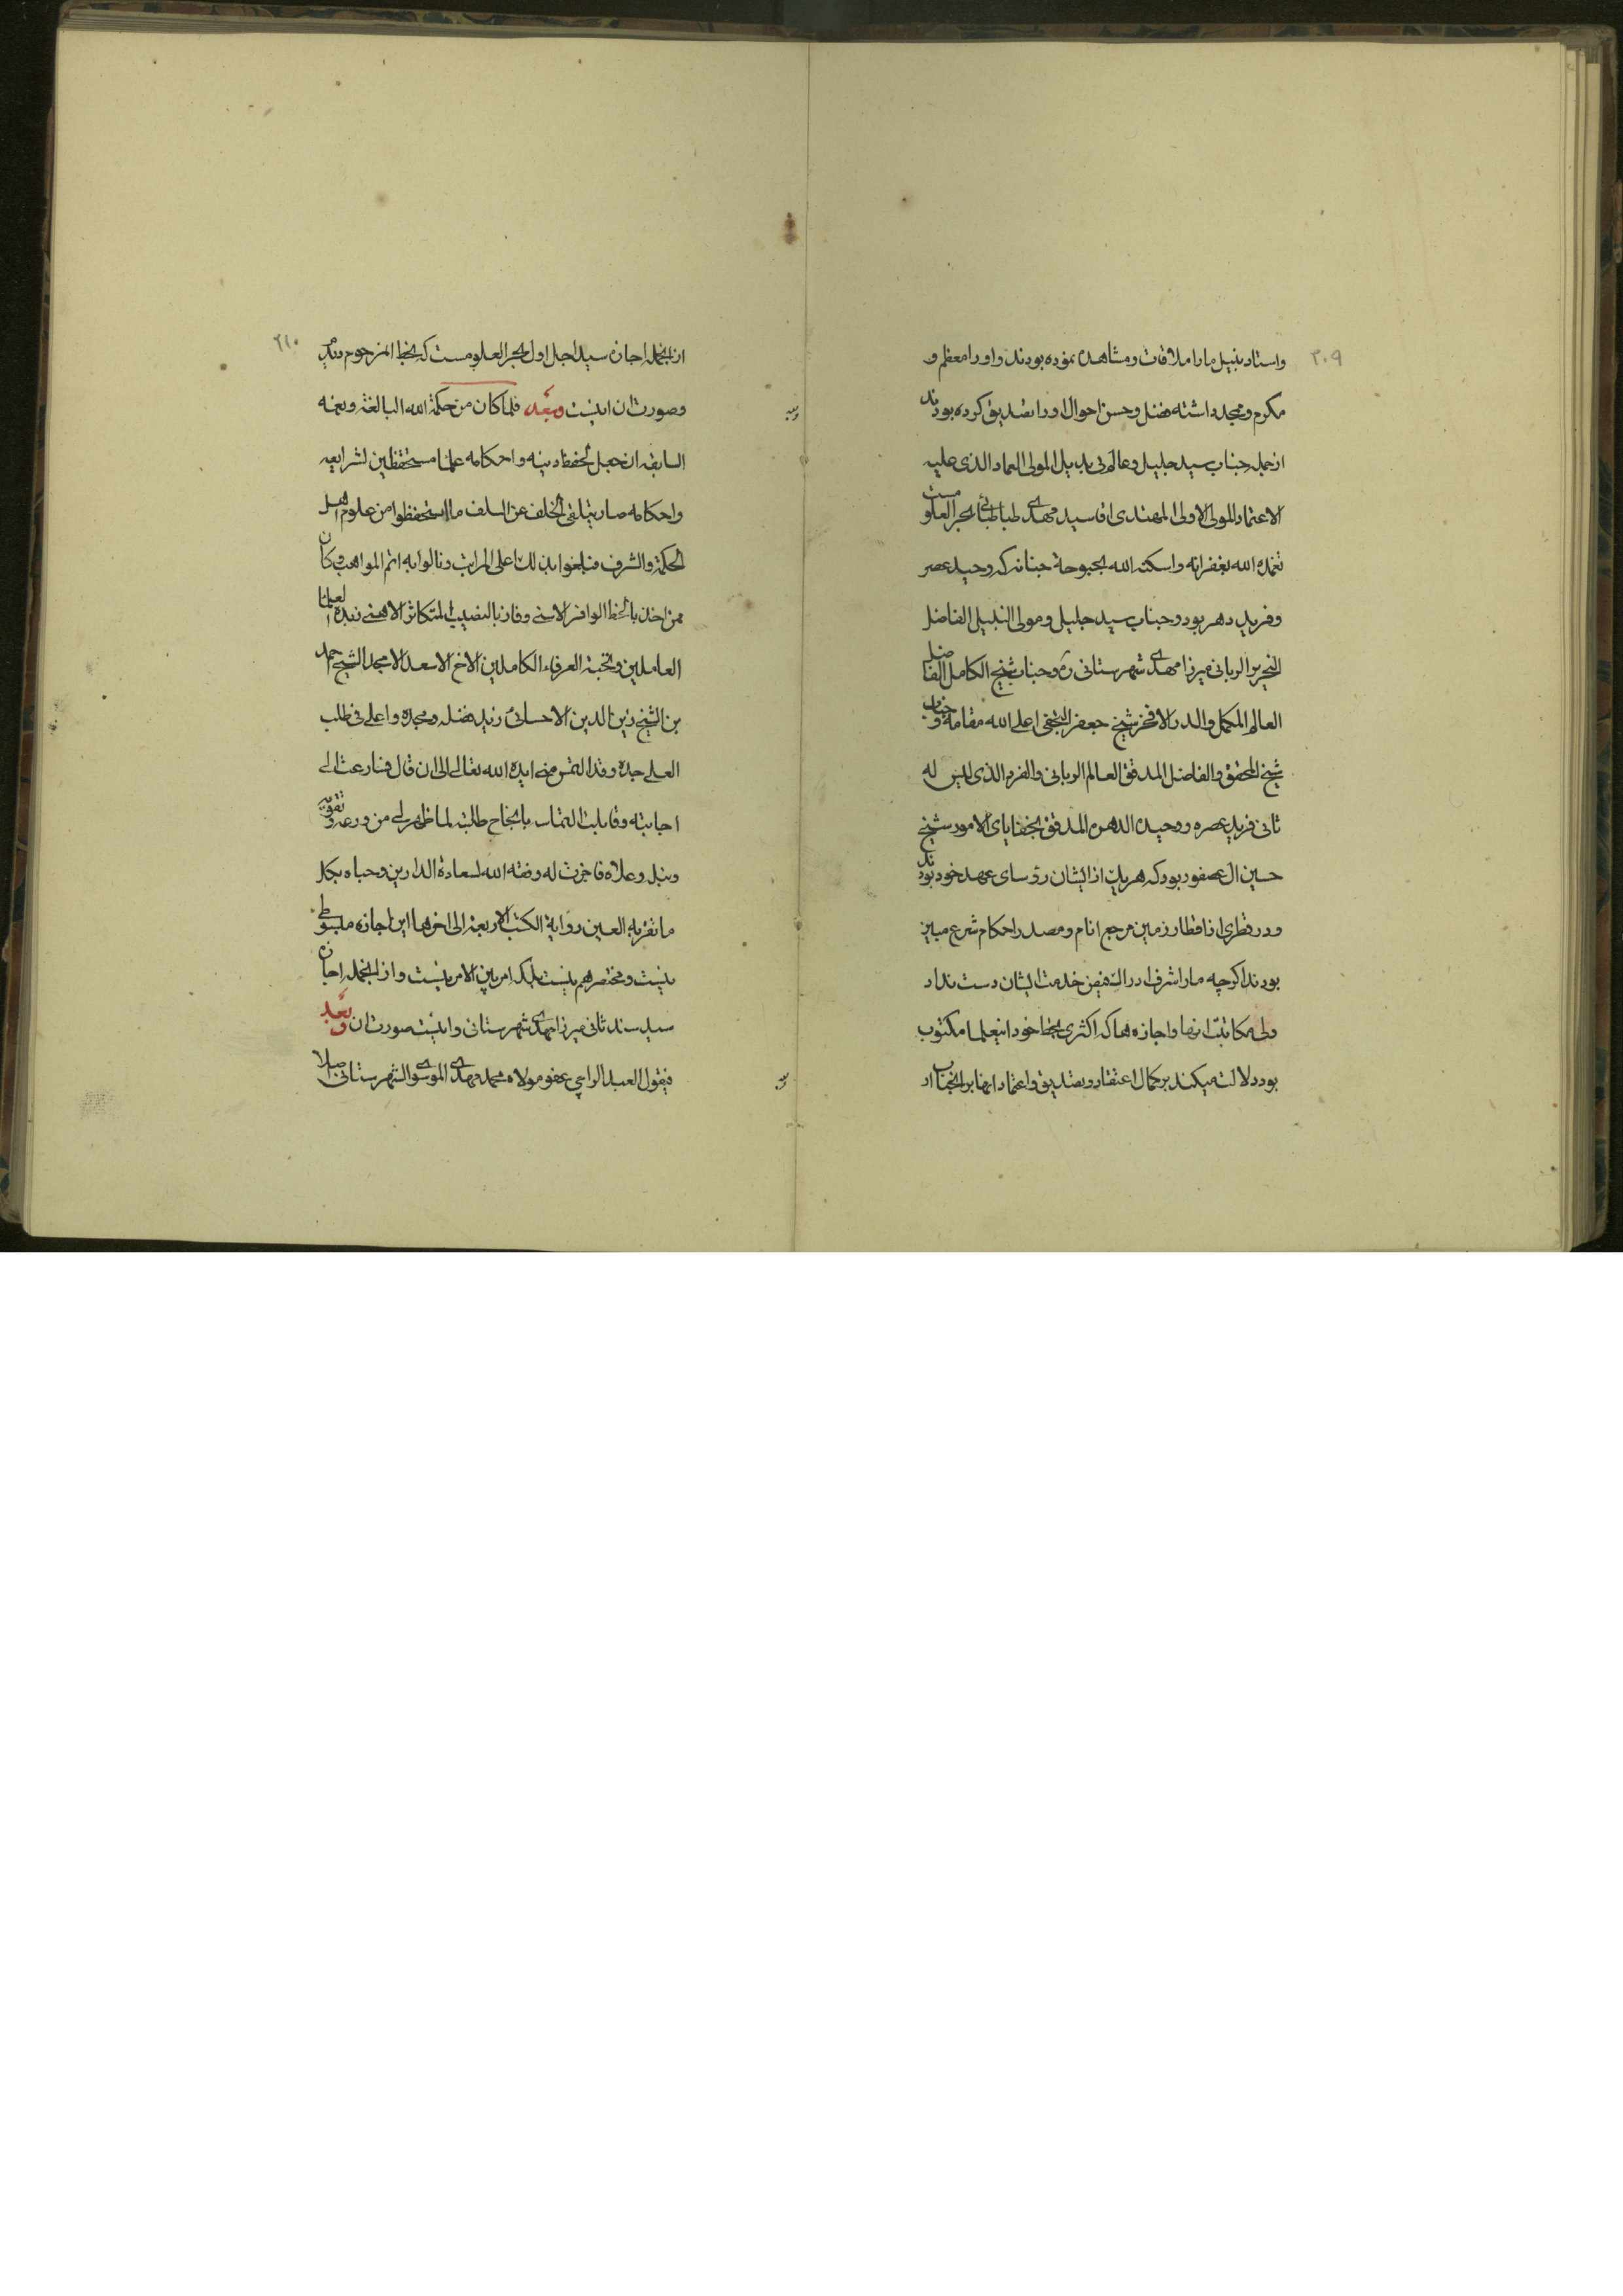 ۲۰۹
واستاد نبیل ما را ملاقات و مشاهده نموده بودند و او را معظم و
مکرم و ممجد داشته فضل و حسن احوال او را تصدیق کرده بودند
از جمله جناب سید جلیل و عالم بی بدیل المولی العماد الذی علیه
الاعتماد المولی الاولی المهتدی اقا سید مهدی طباطبائی بحر العلومست
تغمده الله بغفرانه واسکنه الله بحبوحة جنانه که وحید عصر
وفرید دهر بود و جناب سید جلیل و مولی النبیل الفاضل
النحریر الربانی میرزا مهدی شهرستانی ره و جناب شیخ الکامل الفاضل
العالم المکمل والدر الافخر شیخ جعفر النجفی اعلی الله مقامه و جناب
شیخ المحقق والفاضل المدقق العالم الربانی والفرد الذی لیس له
ثانی فرید عصره و وحیده الدهره المدقق بخفایای الامور شیخ
حسین ال عصفور بود که هر یک از ایشان رؤسای عهد خود بودند
و در قطری از اقطار زمین مرجع انام و مصدر احکام شرع مبین
بودند اکرچه ما را شرف ادراک فیض خدمت ایشان دست نداد
ولی مکاتبت انها و اجازه ها که اکثری بخط خود اینعلما مکتوب
بود دلالت میکند بر کمال اعتقاد و تصدیق و اعتماد انها بر انجناب
۲۱۰
از انجمله اجازه سید اجل اول بحر العلومست که بخط المرحوم
وصورت ان اینست وبعد فلما کان من حکمة الله البالغة ونعمه
السابغه ان جعل لحفظ دینه واحکامه علماء مستحفظین لشرایعه
واحکامه صار یتلقی الخلف عن السلف ما استحفظوا من علوم اهل
الحکمة والشرف فبلغوا بذلک اعلی المراتب ونالوا به اتم المواهب وکان
ممن اخذ بالحظ الوافر الاسنی وفاز بالنصیب المتکاثر الاهنی زبدة العلماء
العاملین ونخبة العرفاء الکاملین الاخ الاسعد الامجد الشیخ احمد
بن الشیخ زین الدین الاحسائی زید فضله ومجده واعلی فی طلب
العلی جده وقد التمس منی ایده الله تعالی الی ان قال فسارعت الی
اجابته وقابلت التماسه بانجاح طلبته لما ظهر لی من ورعه وتقویه
ونبله وعلاه فاجزت له وفقه الله لسعادة الدارین وحباه بکل
ما تقر به العین روایة الکتب الاربعة الی اخرها این اجازه مبسوطی
نیست و مختصر هم نیست بلکه امر بین الامرینست و از انجمله اجازه
سید سند ثانی میرزا مهدی شهرستانی واینست صورت ان وبعد
فیقول العبد الراجی عفو مولاه محمد مهدی الموسوی الشهرستانی اصلا